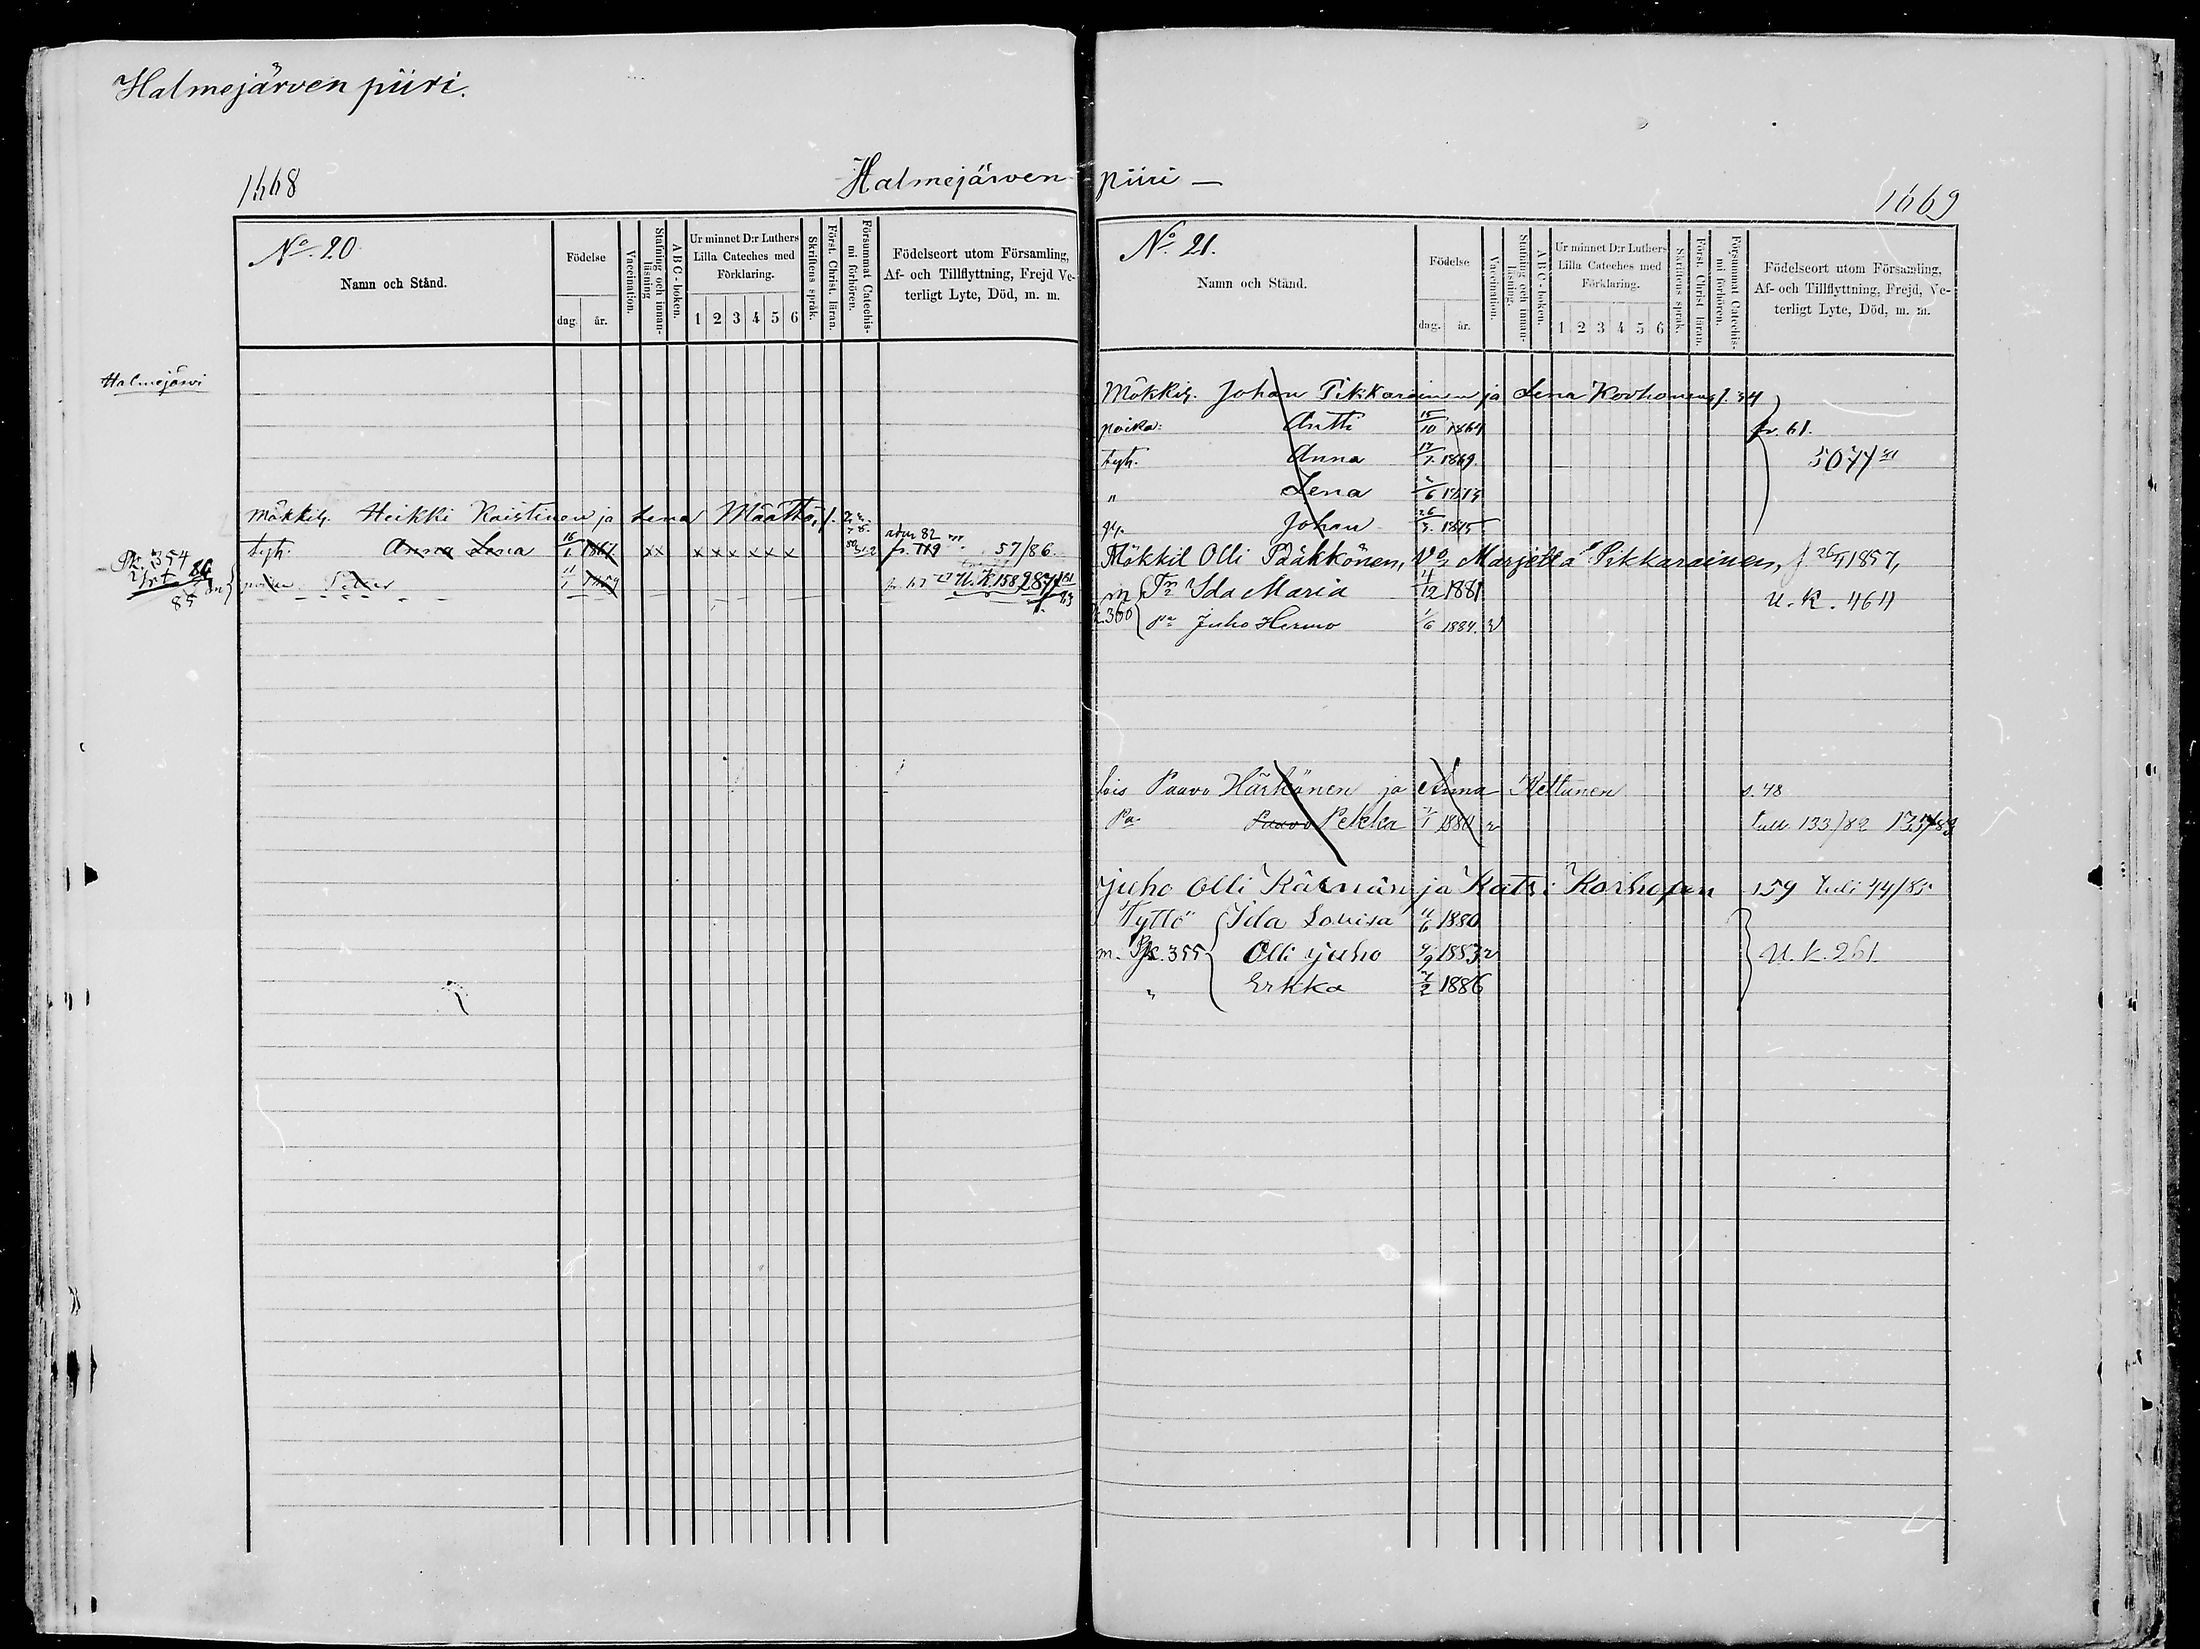 Halmejärven piiri.
1668
Halmejärven piiri
1669
No. 20
Namn och Stånd.
Födelse
dag.
år.
Vaccination.
Stafning och innanläsning
ABC-boken.
Ur minnet D:r Luthers Lilla Cateches med Förklaring.
1 2 3 4 5 6
Skriftens språk.
Först. Christ. läran.
Försummat Catechismi förhören.
Födelseort utom Församling, Af- och Tillflyttning, Frejd Veterligt Lyte, Död, m. m.
Halmejärvi
Mökkil. Heikki Kaistinen ja Lena Määttä,
tyt. Anna Lena 16/1 1867 xx x x x x x x 57/86.
Pk. 354
poika Petter 11/1
No. 21.
Namn och Stånd.
Födelse
dag.
år.
Vaccination.
Stafning och innanläsning.
ABC-boken.
Ur minnet D:r Luthers Lilla Cateches med Förklaring.
1 2 3 4 5 6
Skriftens språk.
Först. Christ. läran.
Försummat Catechismi förhören.
Födelseort utom Församling, Af- och Tillflyttning, Frejd, Veterligt Lyte, Död, m. m.
Mökkil. Johan Pikkarainen ja Lena Korhonen
poika: Antti 15/10 1864 fr. 61.
tyt. Anna 1869.
" Lena
Johan 26/3. 1875
Mökkil Olli Pääkkönen, Vo Marjetta Pikkarainen, f 1857,
m Tr Ida Maria 4/12 1881 U. K. 464
360 Pa Juho Hermo 1/6 1884. v
lois Paavo Härkönen ja Anna Kettunen s. 48
Pa. Paavo Pekka 1880 v 133/82
Juho Olli Kärnän ja Katri Korhosen 159 44/85
Tyttö Ida Lovisa 11/6 1880
m. Pk. 355 Olli Juho 1883 v U. k. 261
" Erkka 1886